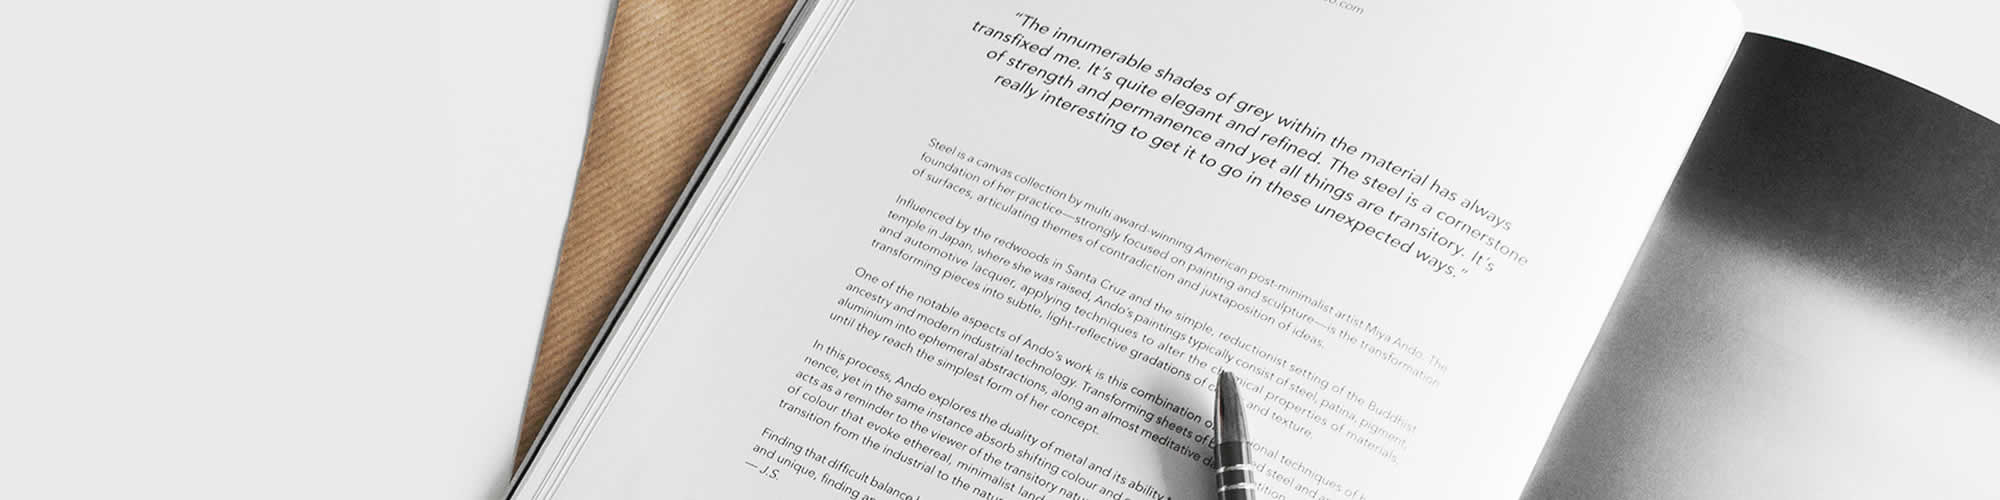 .com
“The innumerable shades of grey within the material has always
transfixed me. It’s quite elegant and refined. The steel is a cornerstone
of strength and permanence and yet all things are transitory. It’s
really interesting to get it to go in these unexpected ways.”
Steel is a canvas collection by multi award-winning American post-minimalist artist Miya Ando. The
foundation of her practice—strongly focused on painting and sculpture—is the transformation
of surfaces, articulating themes of contradiction and juxtaposition of ideas.
Influenced by the redwoods in Santa Cruz and the simple, reductionist setting of the Buddhist
temple in Japan, where she was raised, Ando’s paintings typically consist of steel, patina, pigment,
and automotive lacquer, applying techniques to alter the chemical properties of materials,
transforming pieces into subtle, light-reflective gradations of and texture.
One of the notable aspects of Ando’s work is this combination of techniques of
ancestry and modern industrial technology. Transforming sheets of steel and
aluminium into ephemeral abstractions, along an almost meditative
until they reach the simplest form of her concept.
In this process, Ando explores the duality of metal and its ability
nence, yet in the same instance absorb shifting colour and
acts as a reminder to the viewer of the transitory
of colour that evoke ethereal, minimalist
transition from the industrial to the
Finding that difficult balance
and unique, finding
— J.S.